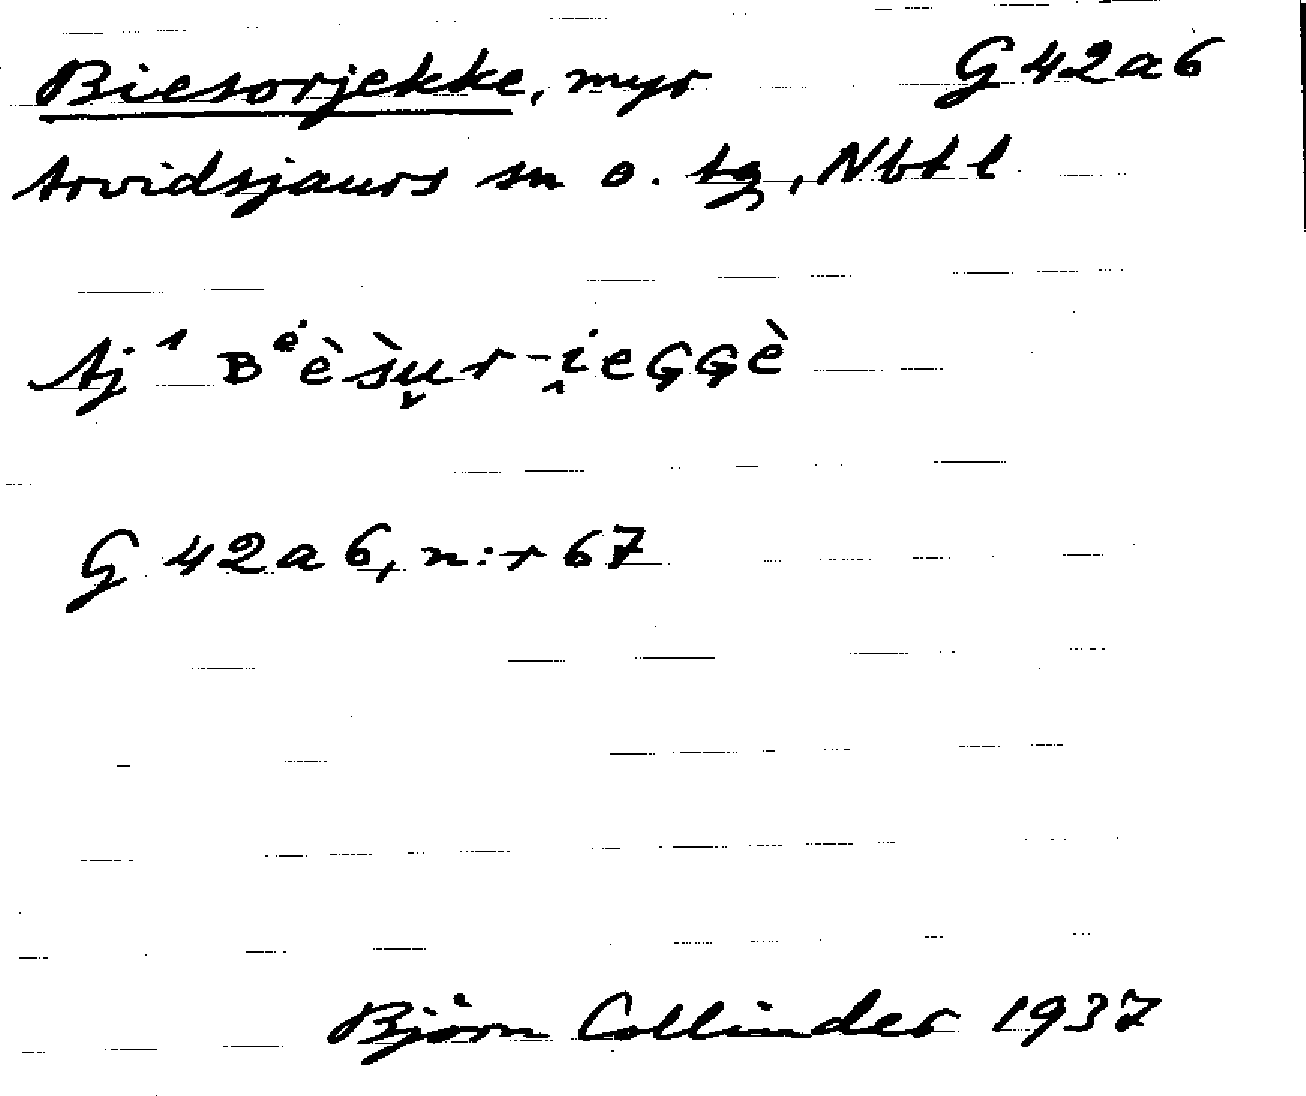 Biesorjekke, myr G 42 a 6
Arvidsjaurs sn o. tg, Nbtl
Aj¹ ʙᵉ̇ès̀u̬r-i̭eɢɢè
G 42 a 6, n:r 67
Björn Collinder 1937